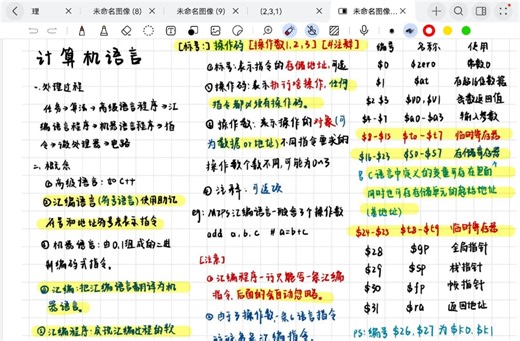 理
未命名图像 (8)
未命名图像 (9)
(2,3,1)
未命名图像...
计算机语言
一.处理过程
任务→算法→高级语言程序→汇
编语言程序→机器语言程序→指
令→微处理器→电路
二.概念
①高级语言:如C++
②汇编语言(符号语言)使用助记
符号和地址符号表示指令
③机器语言:由0.1组成的二进
制编码式指令.
④汇编:把汇编语言翻译为机
器语言.
⑤汇编程序:实现汇编过程的软
[标号:]操作码[操作数1,2,3][#注释]
①标号:表示指令的存储地址,可选
②操作码:表示执行啥操作,任何
指令都必须有操作码.
③操作数:表示操作的对象(可
为数据or地址)不同指令要求的
操作数个数不同,可能为0~3
④注释:可选项
eg:MIPS汇编语言-般含3个操作数
add a,b,c # a=b+c
[注意]
①汇编程序一行只能写一条汇编
指令,后面的会自动忽略.
②由于3操作数,一条C语言指令
编号 名称 使用
$0 $zero 常数0
$1 $at
$2 $3 $v0,$v1 函数返回值
$4~$7 $a0~$a3 输入参数
$8~$15 $t0~$t7 临时寄存器
$16~$23 $s0~$s7 存储寄存器
C语言中定义的变量可存在里面
同时也可存存储单元的起始地址
(基地址)
$24~$25 $t8~$t9 临时寄存器
$28 $gp 全局指针
$29 $sp 栈指针
$30 $fp 帧指针
$31 $ra 返回地址
PS:编号$26,$27为$k0,$k1